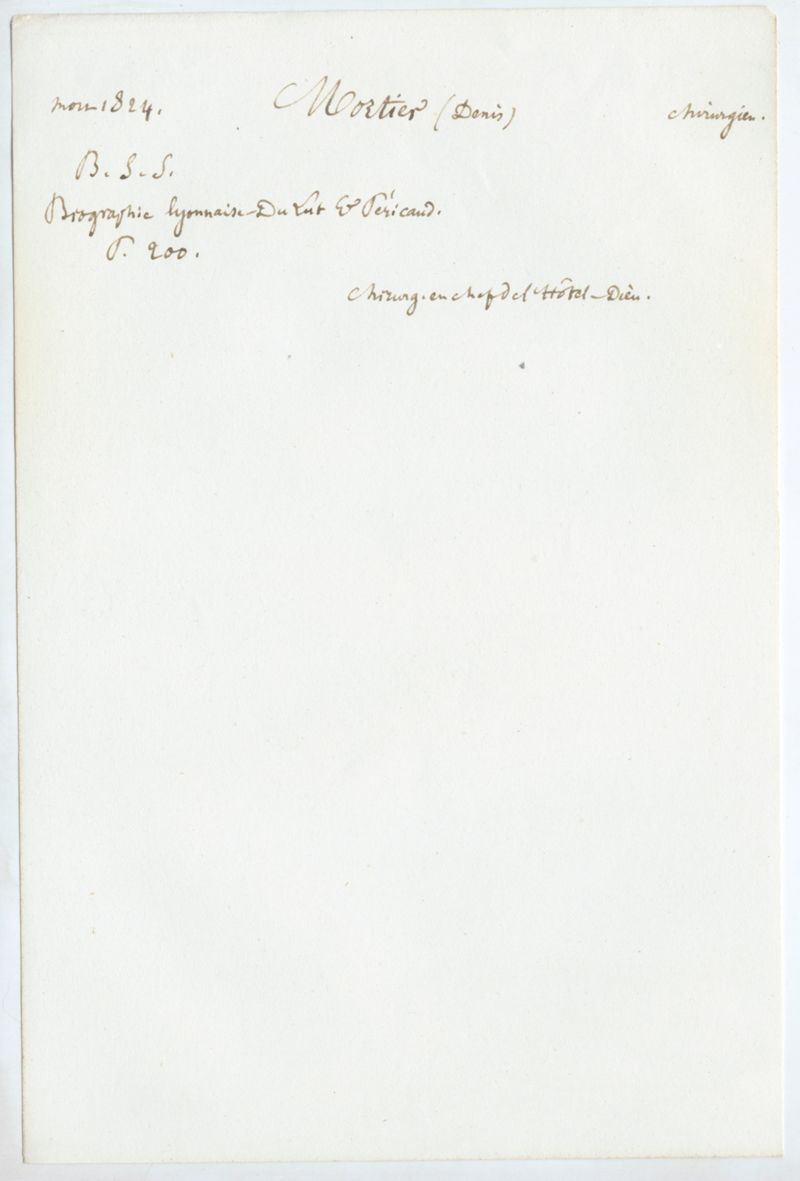 mort 1824. Mortier (Denis) chirurgien.
B. S. S.
Biographie lyonnaise-Du Lut & Péricaud.
P. 200.
chirurgien chef de l'Hôtel-Dieu.